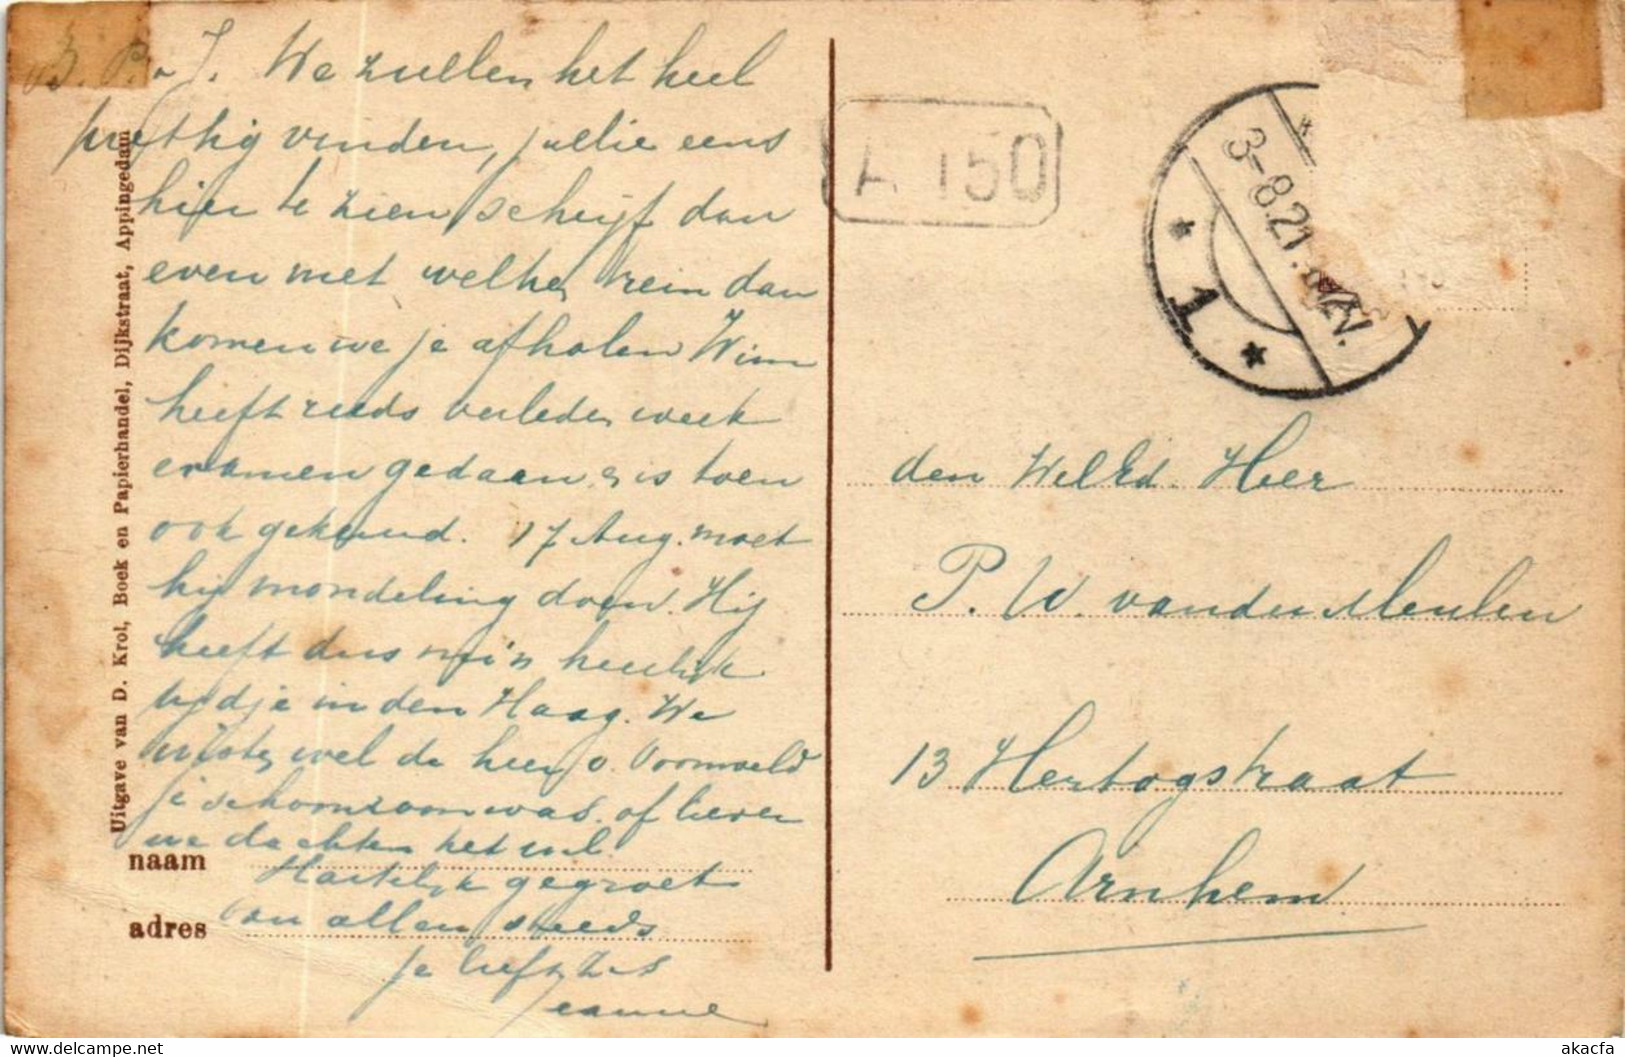 B. P. J. We zullen het heel
prettig vinden, jullie eens
hier te zien, schrijf dan
even met welke trein dan
komen we je afhalen Wim
heeft reeds verleden week
examen gedaan, is toen
ook gekeurd. 17 Aug. moet
hij mondeling doen. Hij
heeft dus zijn heerlijk
tijdje in den Haag. We
wisten wel de heer v.
je schoonzoon was. of liever
we dachten het wel.
Hartelijk gegroet
van allen steeds
je liefh. zus
Jeanne
Uitgave van D. Krol, Boek en Papierhandel, Dijkstraat, Appingedam
naam
adres
A 150
3-8.21. N.
1
den WelEd. Heer
P. W. van der Meulen
13 Hertogstraat
Arnhem
akacfa
delcampe.net